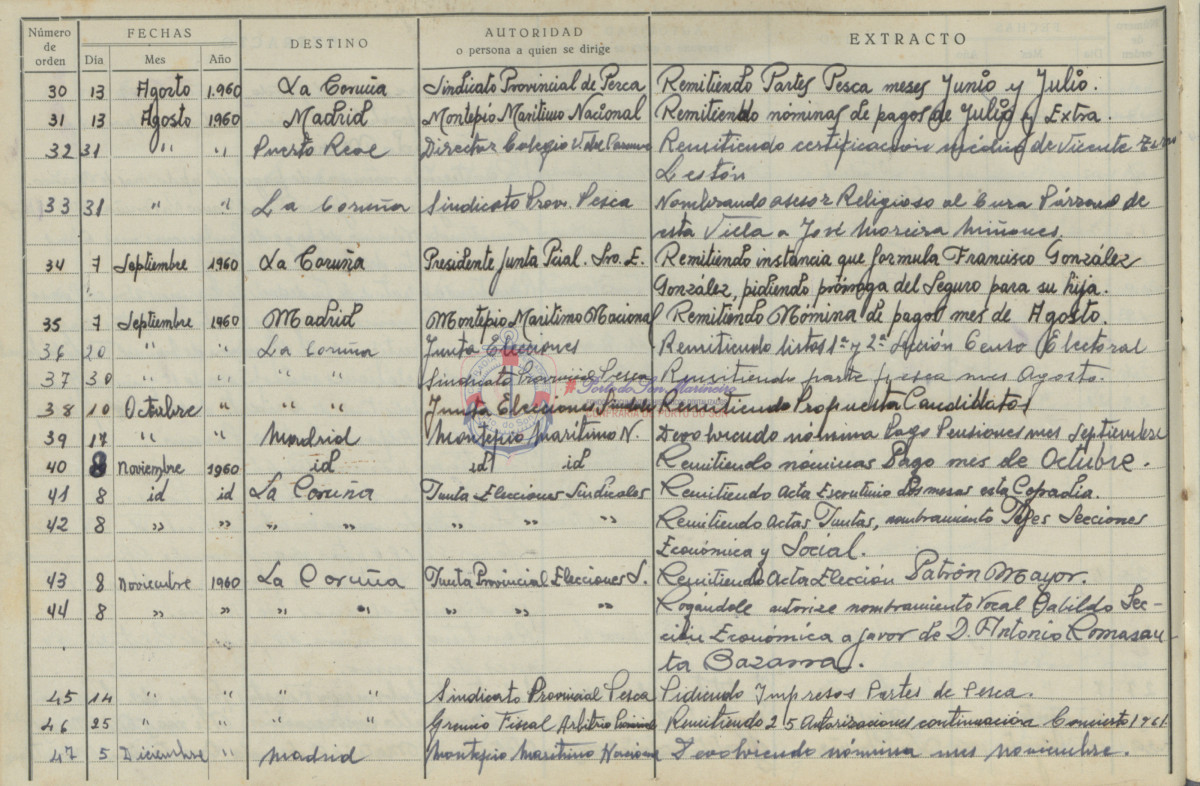 Número de orden FECHAS DESTINO AUTORIDAD o persona a quien se dirige EXTRACTO
Día Mes Año
30 13 Agosto 1.960 La Coruña Sindicato Provincial de Pesca Remitiendo Partes Pesca meses Junio y Julio.
31 13 Agosto 1960 Madrid Montepío Maritimo Nacional Remitiendo nóminas de pagos de Julio y Extra.
32 31 " " Puerto Real Director Colegio Remitiendo certificación médica de Vicente
Lestón
33 31 " " La Coruña Sindicato Prov. Pesca Nombrando asesor Religioso al Cura Párroco de
esta Villa a José Moreira Miñones.
34 7 Septiembre 1960 La Coruña Presidente Junta Pcial. Sro. E. Remitiendo instancia que formula Francisco González
González, pidiendo prórroga del Seguro para su hija.
35 7 Septiembre 1960 Madrid Montepío Maritimo Nacional Remitiendo Nómina de pagos mes de Agosto.
36 20 " " La Coruña Junta Elecciones Remitiendo listas 1ª y 2ª Sección Censo Electoral
37 30 " " " " Sindicato Provincial Pesca Remitiendo parte pesca mes Agosto.
38 10 Octubre " " " Junta Elecciones Sindicales Remitiendo Propuesta Candidatos
39 17 " " Madrid Montepío Maritimo N. Devolviendo nómina Pago Pensiones mes Septiembre
40 8 Noviembre 1960 id id id Remitiendo nóminas Pago mes de Octubre.
41 8 id id La Coruña Junta Elecciones Sindicales Remitiendo Acta Escrutinio dos mesas esta Cofradia.
42 8 " " " " " " " Remitiendo Actas Juntas, nombramiento Jefes Secciones
Económica y Social.
43 8 Noviembre 1960 La Coruña Junta Provincial Elecciones S. Remitiendo Acta Elección Patrón Mayor.
44 8 " " " " " " " Rogándole autorize nombramiento Vocal Cabildo Sec-
ción Económica a favor de D. Antonio Romasan-
ta Bazarra.
45 14 " " " " Sindicato Provincial Pesca Pidiendo Impresos Partes de Pesca.
46 25 " " " " Gremio Fiscal Arbitrio Remitiendo 25 Autorizaciones continuación Concierto 1961.
47 5 Diciembre " Madrid Montepío Maritimo Nacional Devolviendo nómina mes noviembre.
Porto do Son Mariñeiro
CONFRARIA DE PORTO DO SON